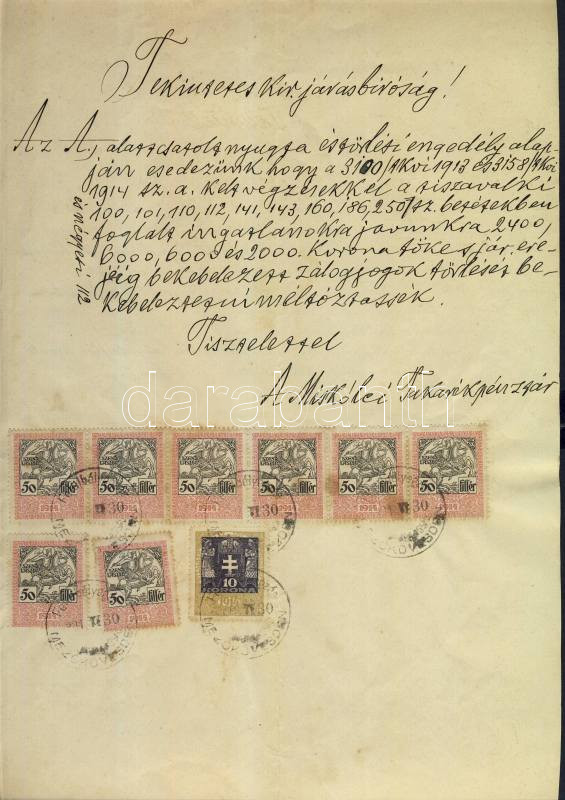 Tekintetes kir. járásbíróság!
Az A., alatt csatolt nyugta és törlési engedély alap-
ján esedezünk hogy a 3100/tkvi 1913 és 3158/tkvi
1914 sz. a. kelt végzésekkel a tiszavalki
100, 101, 110, 112, 141, 143, 160, 186, 250/sz. betétekben
foglalt ingatlanokra javunkra 2400,
6000, 6000 és 2000. Korona tőke s jár. ere-
jéig bekebelezett zálogjogok törlését be-
kebeleztetni méltóztassék.
és négyesi 112
Tisztelettel
A Miskolci Takarékpénztár
darabanth
50 fillér 1914
50 fillér 1914
50 fillér 1914
50 fillér 1914
50 fillér 1914
50 fillér 1914
50 fillér 1914
50 fillér 1914
10
KORONA
1914
MEZŐKÖVESDEN
VI 30